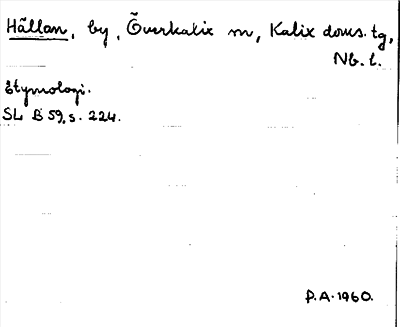 Hällan, by, Överkalix sn, Kalix doms. tg,
Nb. l.
Etymologi.
SL B 59, s. 224.
P.A. 1960.